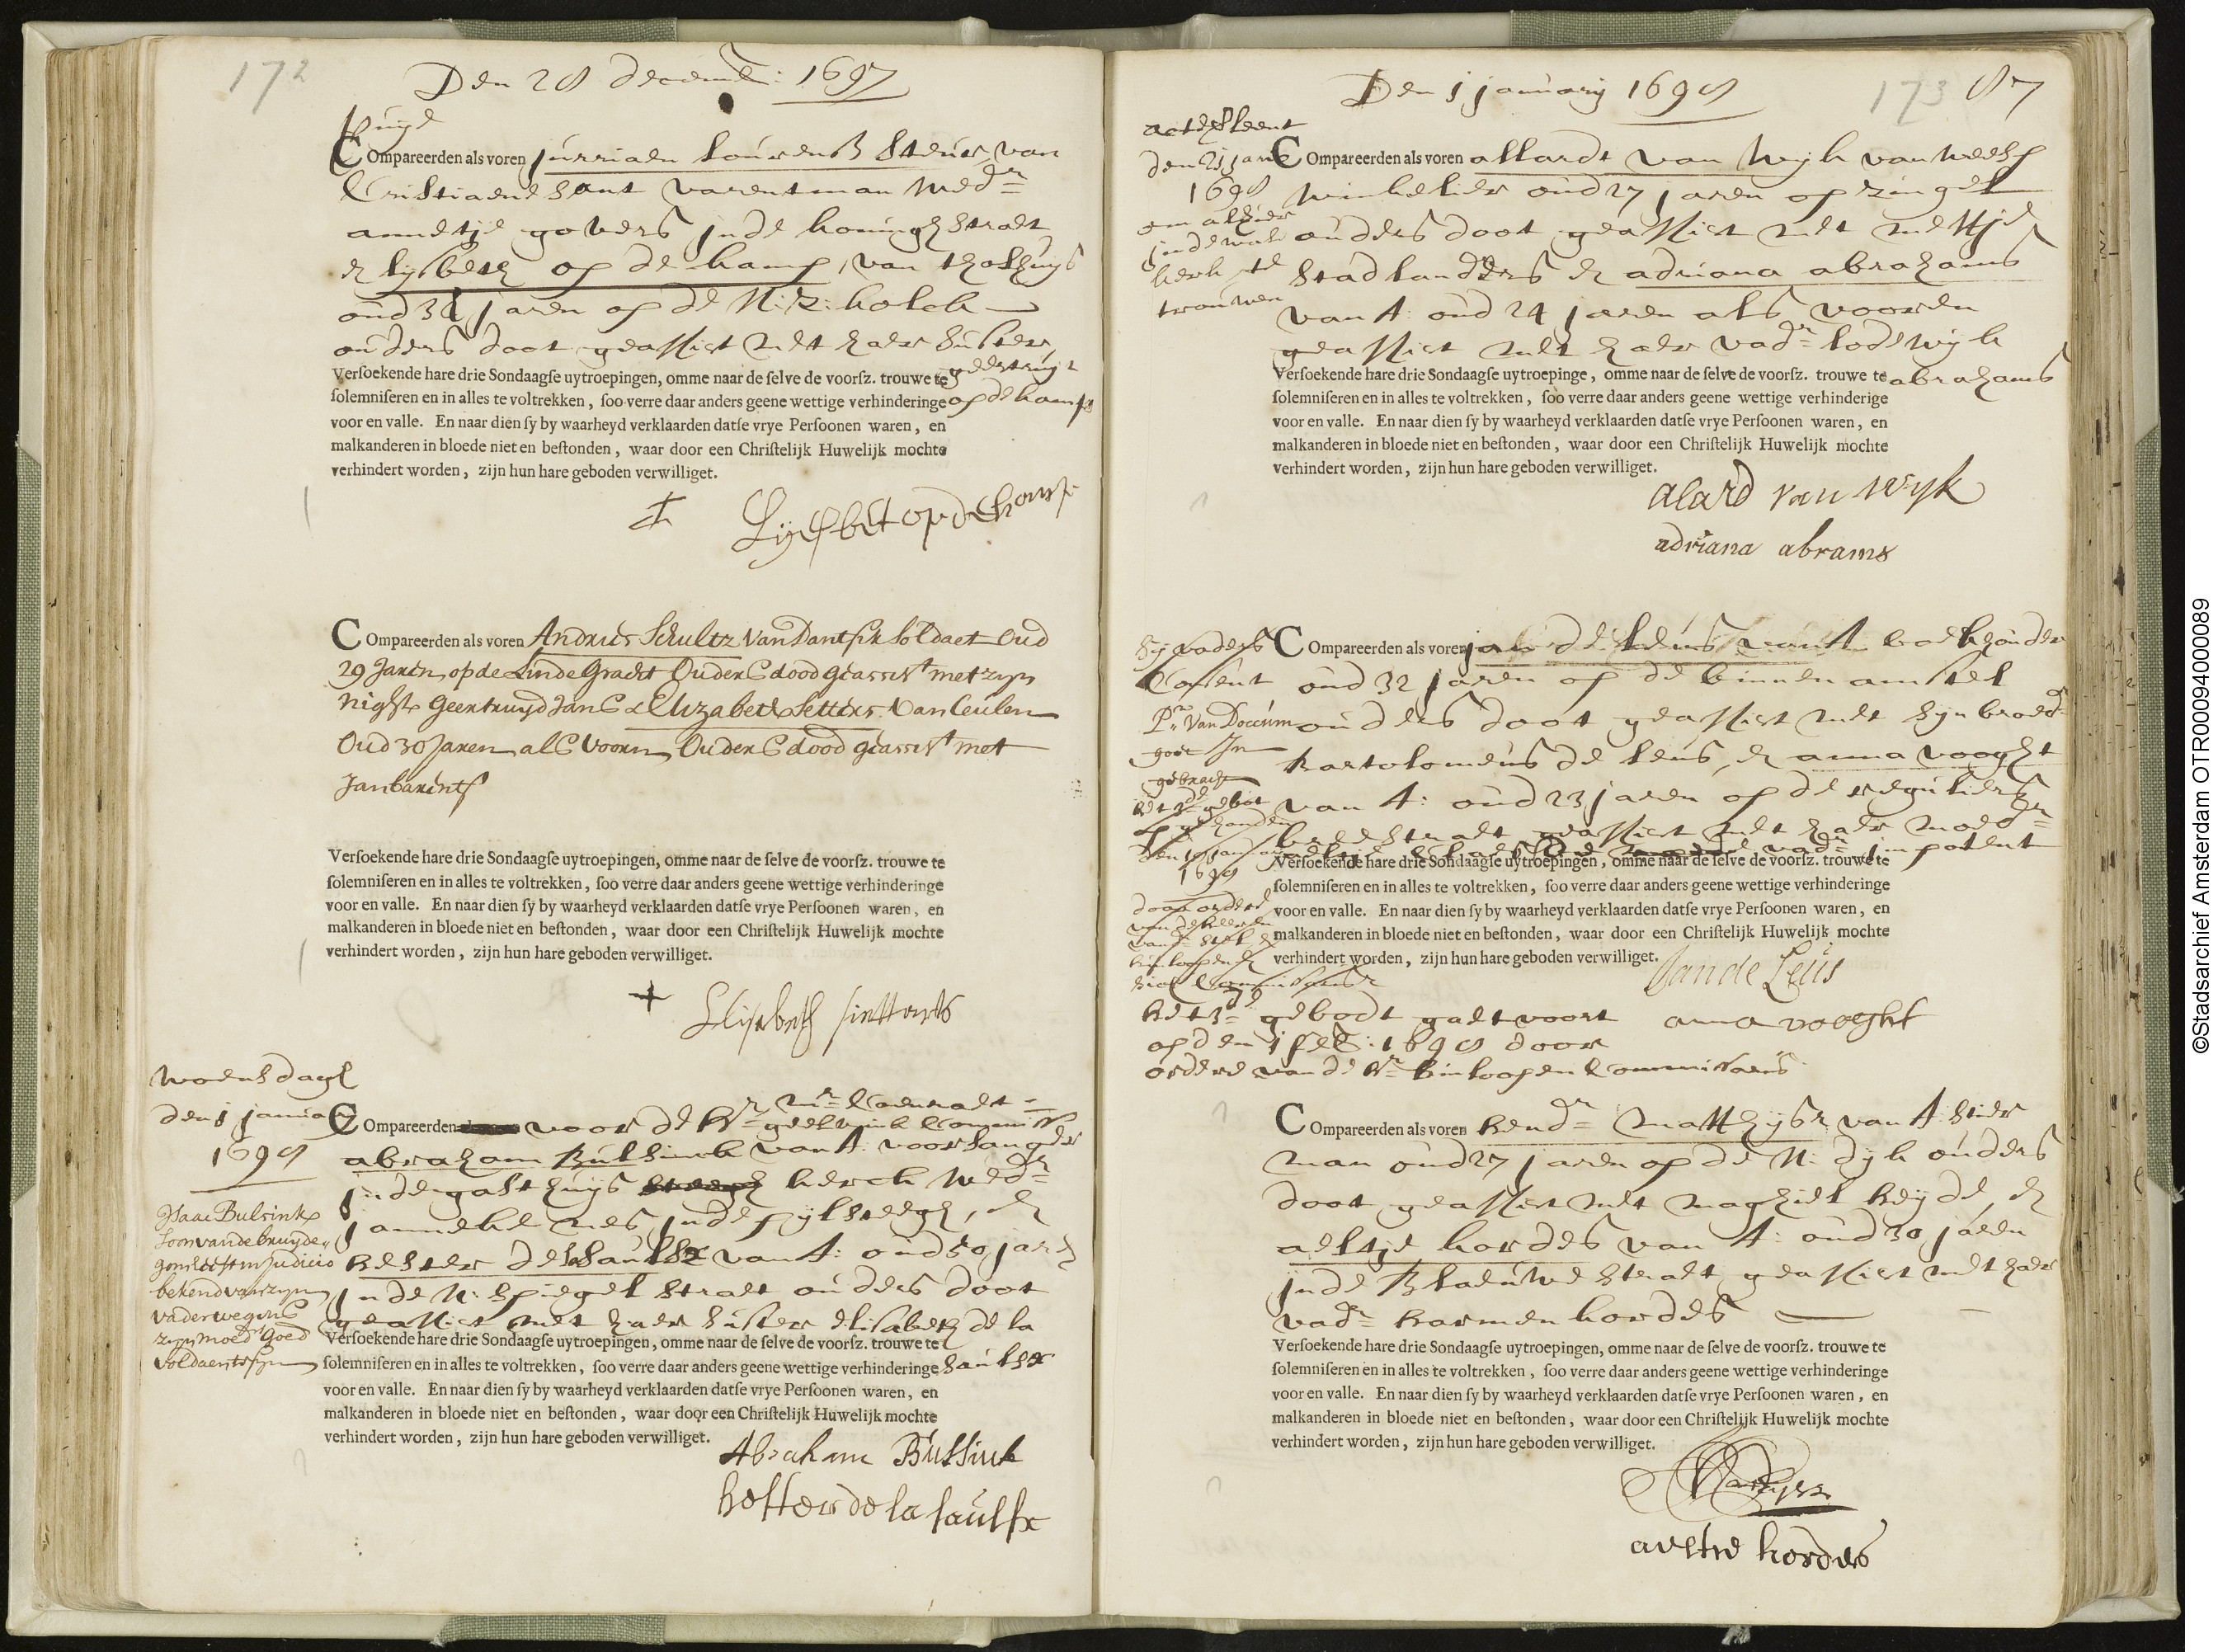 172
Den 28 decemb: 1697
Compareerden als voren Jurriaen Lourensz Steur van
Cristiaene Sant varentman wedr
annetje govers in de koningstraet
& lijsbeth op de kamp, van Tholhuijs
oud 34 jaren op de N: Z: kolck
ouders doot geassist met haer suster
geertruijt
op de kamp
Versoekende hare drie Sondaagse uytroepingen, omme naar de selve de voorsz. trouwe te
solemniseren en in alles te voltrekken, soo verre daar anders geene wettige verhinderinge
voor en valle. En naar dien sy by waarheyd verklaarden datse vrye Persoonen waren, en
malkanderen in bloede niet en bestonden, waar door een Christelijk Huwelijk mochte
verhindert worden, zijn hun hare geboden verwilliget.
Lijesbet op de kamp
Compareerden als voren Andries Schultz van Dantsik Soldaet Oud
29 Jaren op de Linde Gracht Ouders dood geassist met zijn
nigt Geertruyd Jans & Elizabeth Setters van Ceulen
Oud 30 Jaren als vooren Ouders dood geassist met
Jan barents
Versoekende hare drie Sondaagse uytroepingen, omme naar de selve de voorsz. trouwe te
solemniseren en in alles te voltrekken, soo verre daar anders geene wettige verhinderinge
voor en valle. En naar dien sy by waarheyd verklaarden datse vrye Persoonen waren, en
malkanderen in bloede niet en bestonden, waar door een Christelijk Huwelijk mochte
verhindert worden, zijn hun hare geboden verwilliget.
Elisabeth sittards
woensdagh
den 1 januarij
1698
Compareerden voor de Hr mr Coenraet
geelvink Commiss
abraham Bulsinck van A: voorsanger
in de gasthuijs kerck wedr
janneke mes in de pijlsteegh, &
Hester de la saulse van A: oud 50 jaren
in de N: spiegelstraet ouders doot
geassist met haer suster elisabeth de la
saulse
Isaac Bulsink
soon van de bruyde
gom heeft in judicio
bekend van zyn
vader wegens
zyn moeders Goed
voldaen te syn
Versoekende hare drie Sondaagse uytroepingen, omme naar de selve de voorsz. trouwe te
solemniseren en in alles te voltrekken, soo verre daar anders geene wettige verhinderinge
voor en valle. En naar dien sy by waarheyd verklaarden datse vrye Persoonen waren, en
malkanderen in bloede niet en bestonden, waar door een Christelijk Huwelijk mochte
verhindert worden, zijn hun hare geboden verwilliget.
Abraham Bulsinck
hester de la saulse
Den 1 januarij 1698
173 87
acte verleent
den 21 jan
1698
om alhier
in de wale
kerk te
trouwen
Compareerden als voren allardt van Wijk van weesp
winkelier oud 27 jaren op cingel
ouders doot geassist met mettje
stadlanders & adriana abrahams
van A: oud 24 jaren als vooren
geassist met haer vadr lodewijk
abrahams
Versoekende hare drie Sondaagse uytroepinge, omme naar de selve de voorsz. trouwe te
solemniseren en in alles te voltrekken, soo verre daar anders geene wettige verhinderige
voor en valle. En naar dien sy by waarheyd verklaarden datse vrye Persoonen waren, en
malkanderen in bloede niet en bestonden, waar door een Christelijk Huwelijk mochte
verhindert worden, zijn hun hare geboden verwilliget.
alard van wyk
adriana abrams
Compareerden als voren jan de leus van A: boekhouder
oud 32 jaren op de binnen amstel
ouders doot geassist met sijn broedr
Bartolomeus de leus, & anna vooght
van A: oud 23 jaren op de reguliers
breestraet geassist met haer moedr
vadr impotent
Hij vaders
Consent
Pr van Doccum
goet In
gebracht
het 2de gebot
door ordre
Commissar
Versoekende hare drie Sondaagse uytroepingen, omme naar de selve de voorsz. trouwe te
solemniseren en in alles te voltrekken, soo verre daar anders geene wettige verhinderinge
voor en valle. En naar dien sy by waarheyd verklaarden datse vrye Persoonen waren, en
malkanderen in bloede niet en bestonden, waar door een Christelijk Huwelijk mochte
verhindert worden, zijn hun hare geboden verwilliget.
Jan de Leus
anna vooght
het 3de gebodt gaet voort
op den 1 feb: 1698 door
ordere van de Hr hinloopen Commissaris
Compareerden als voren Hendr Matthijsz van A: stier
man oud 27 jaren op de N: dijk ouders
doot geassist met maghiel heijde, &
aeltje hordes van A: oud 30 jaren
in de Blaeuwe straet geassist met haer
vadr harmen hordes
Versoekende hare drie Sondaagse uytroepingen, omme naar de selve de voorsz. trouwe te
solemniseren en in alles te voltrekken, soo verre daar anders geene wettige verhinderinge
voor en valle. En naar dien sy by waarheyd verklaarden datse vrye Persoonen waren, en
malkanderen in bloede niet en bestonden, waar door een Christelijk Huwelijk mochte
verhindert worden, zijn hun hare geboden verwilliget.
aeltie hordes
©Stadsarchief Amsterdam OTR00094000089